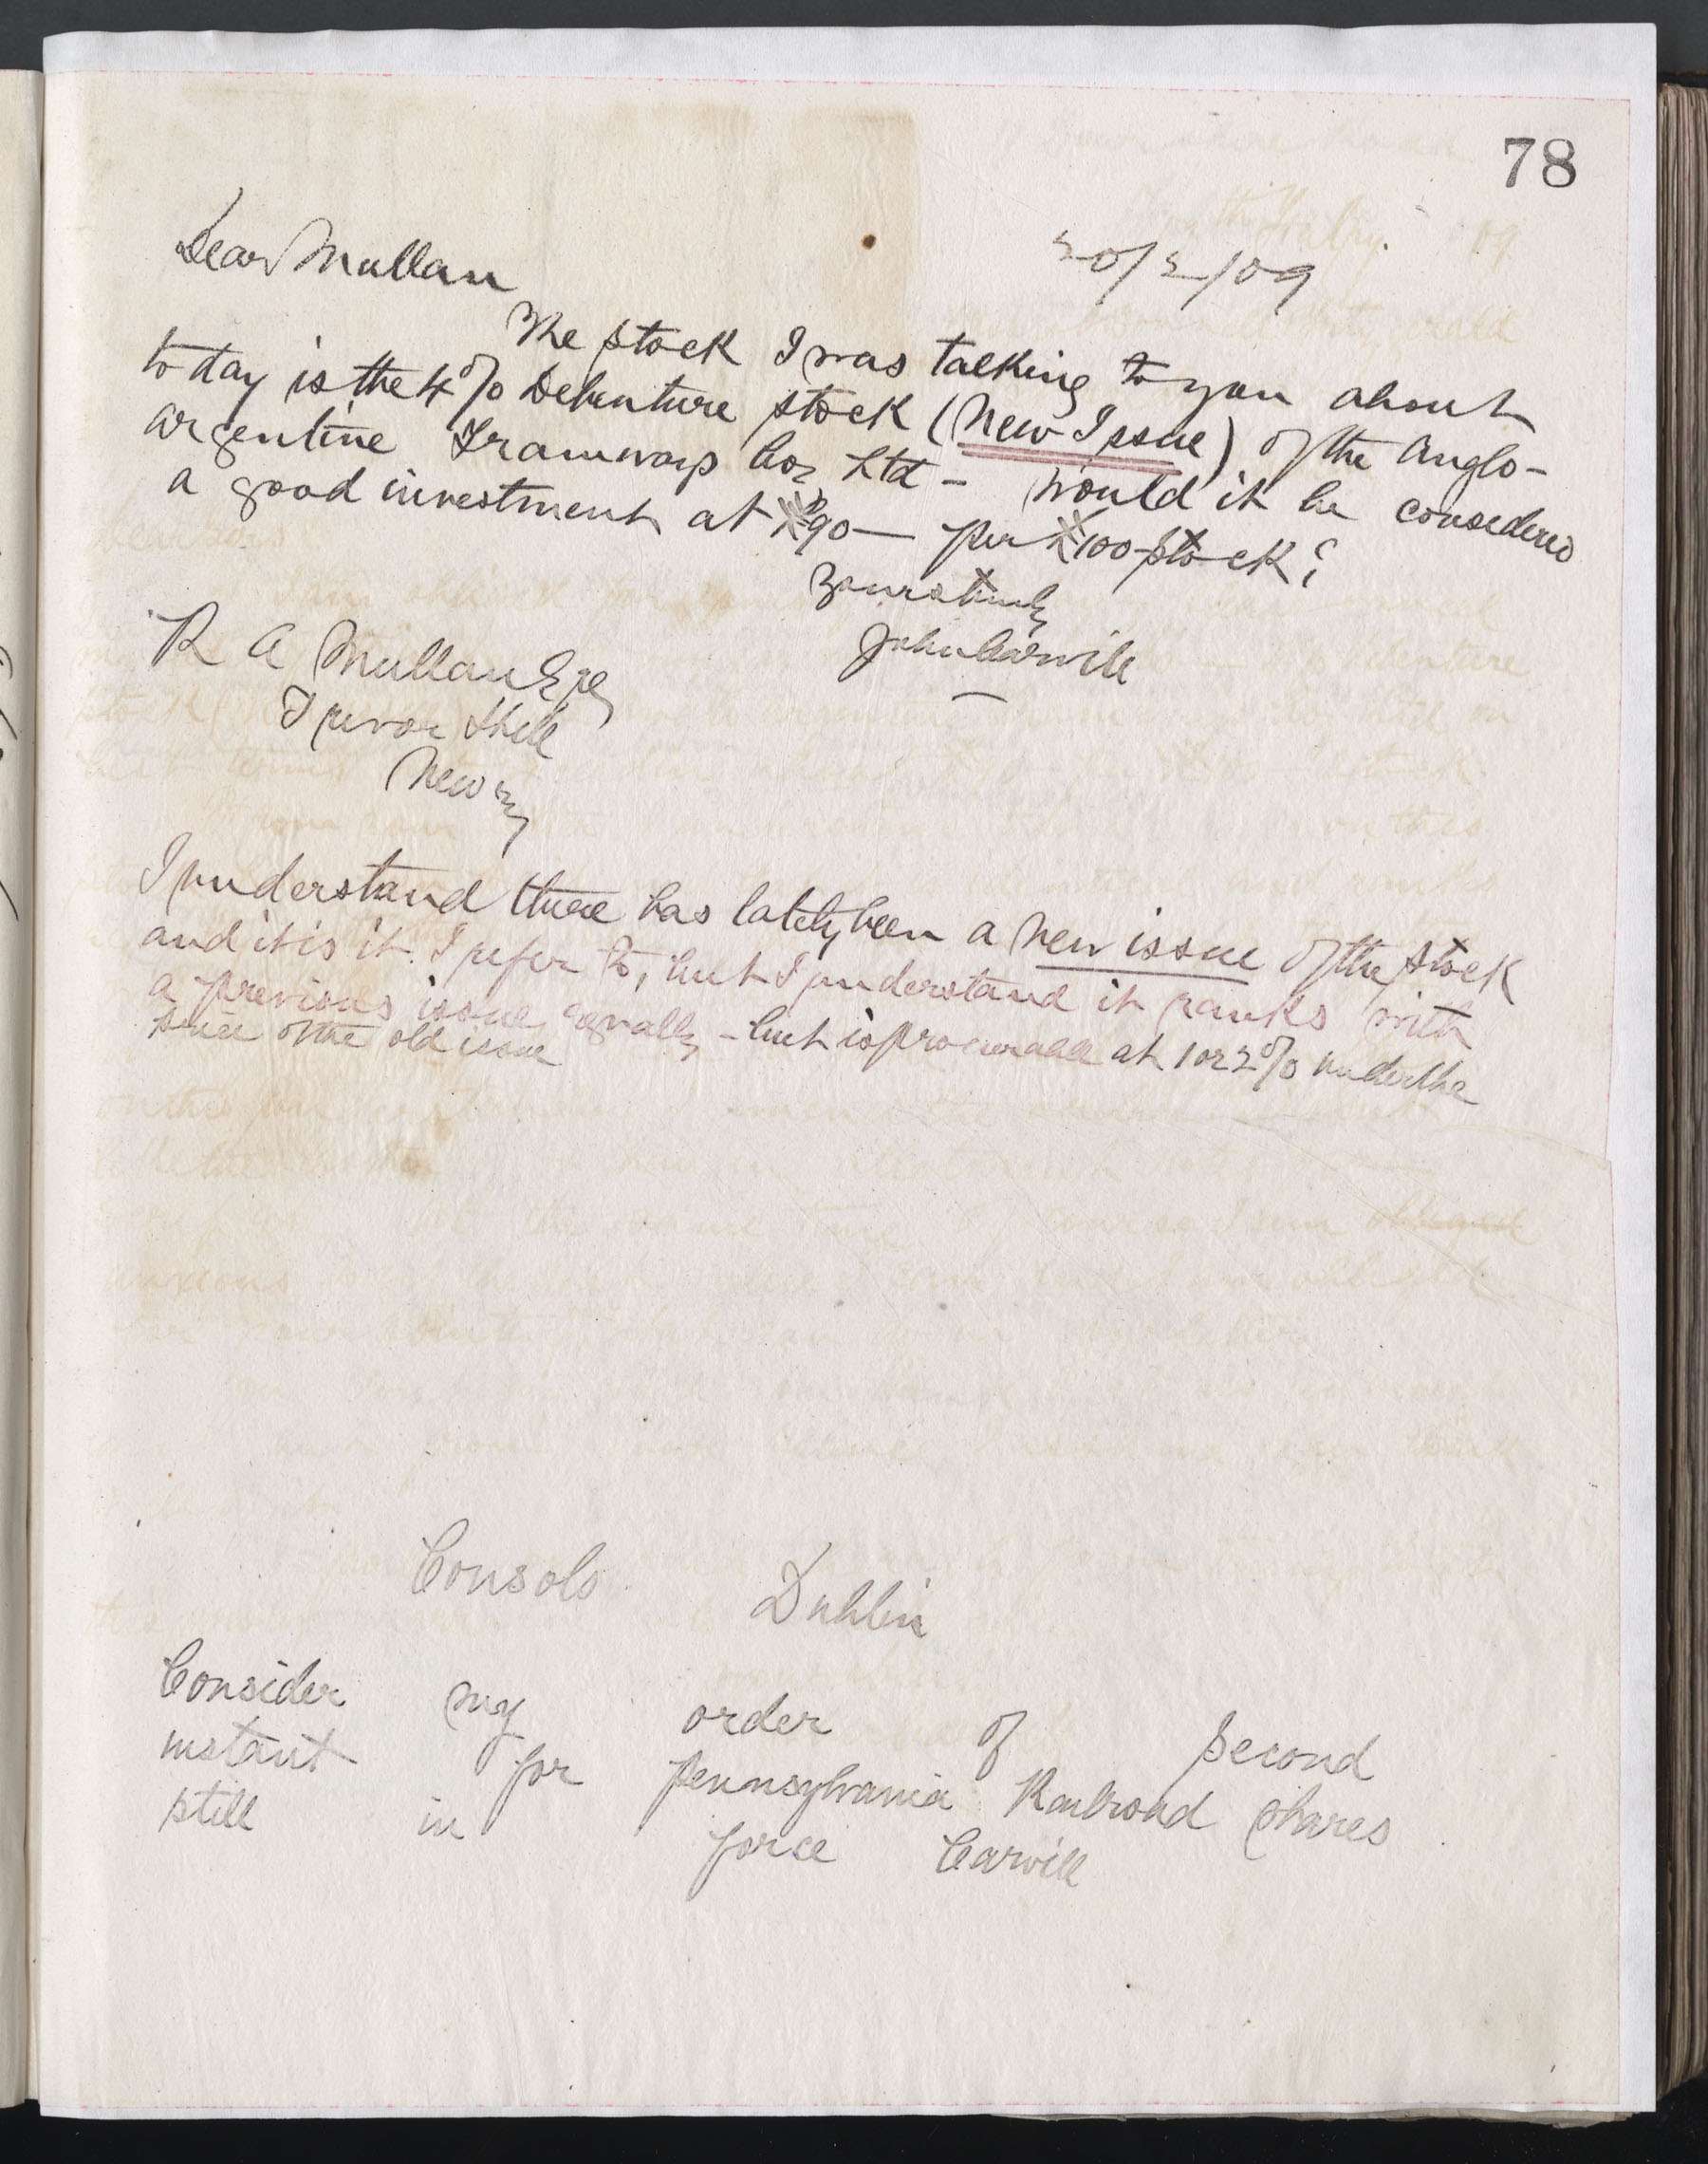 78
20/2/09
Dear Mullan
The stock I was talking to you about
to day is the 4% Debenture stock (New Issue) of the Anglo-
Argentine Tramways Coy Ltd - would it be considered
a good investment at £90— per £100 stock?
Yours truly
John Carvill
R A Mullan Esqe
Trevor Hill
Newry
I understand there has lately been a new issue of the stock
and it is it I refer to, but I understand it ranks with
a previous issue equally - but is procurable at 1 or 2% under the
price of the old issue
Consols Dublin
Consider my order of second
instant for Pennsylvania Railroad shares
still in force Carvill